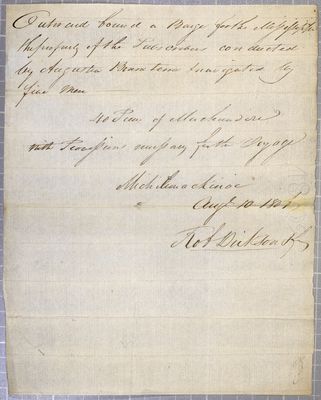 Outward bound a Barge for the Mississippi
the property of the Subscribers conducted
by Augustin navigated by
five men
40 Pieces of Merchandise
with Provisions necessary for the Voyage
Michilimackinac
Augt. 10. 1801
Robt Dickson &